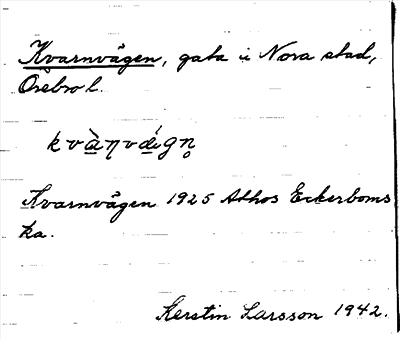 Kvarnvägen, gata i Nora stad,
Örebro l.
kvàŋvǽgn̥
Kvarnvägen 1925 Athos Eckerboms
ka.
Kerstin Larsson 1942.